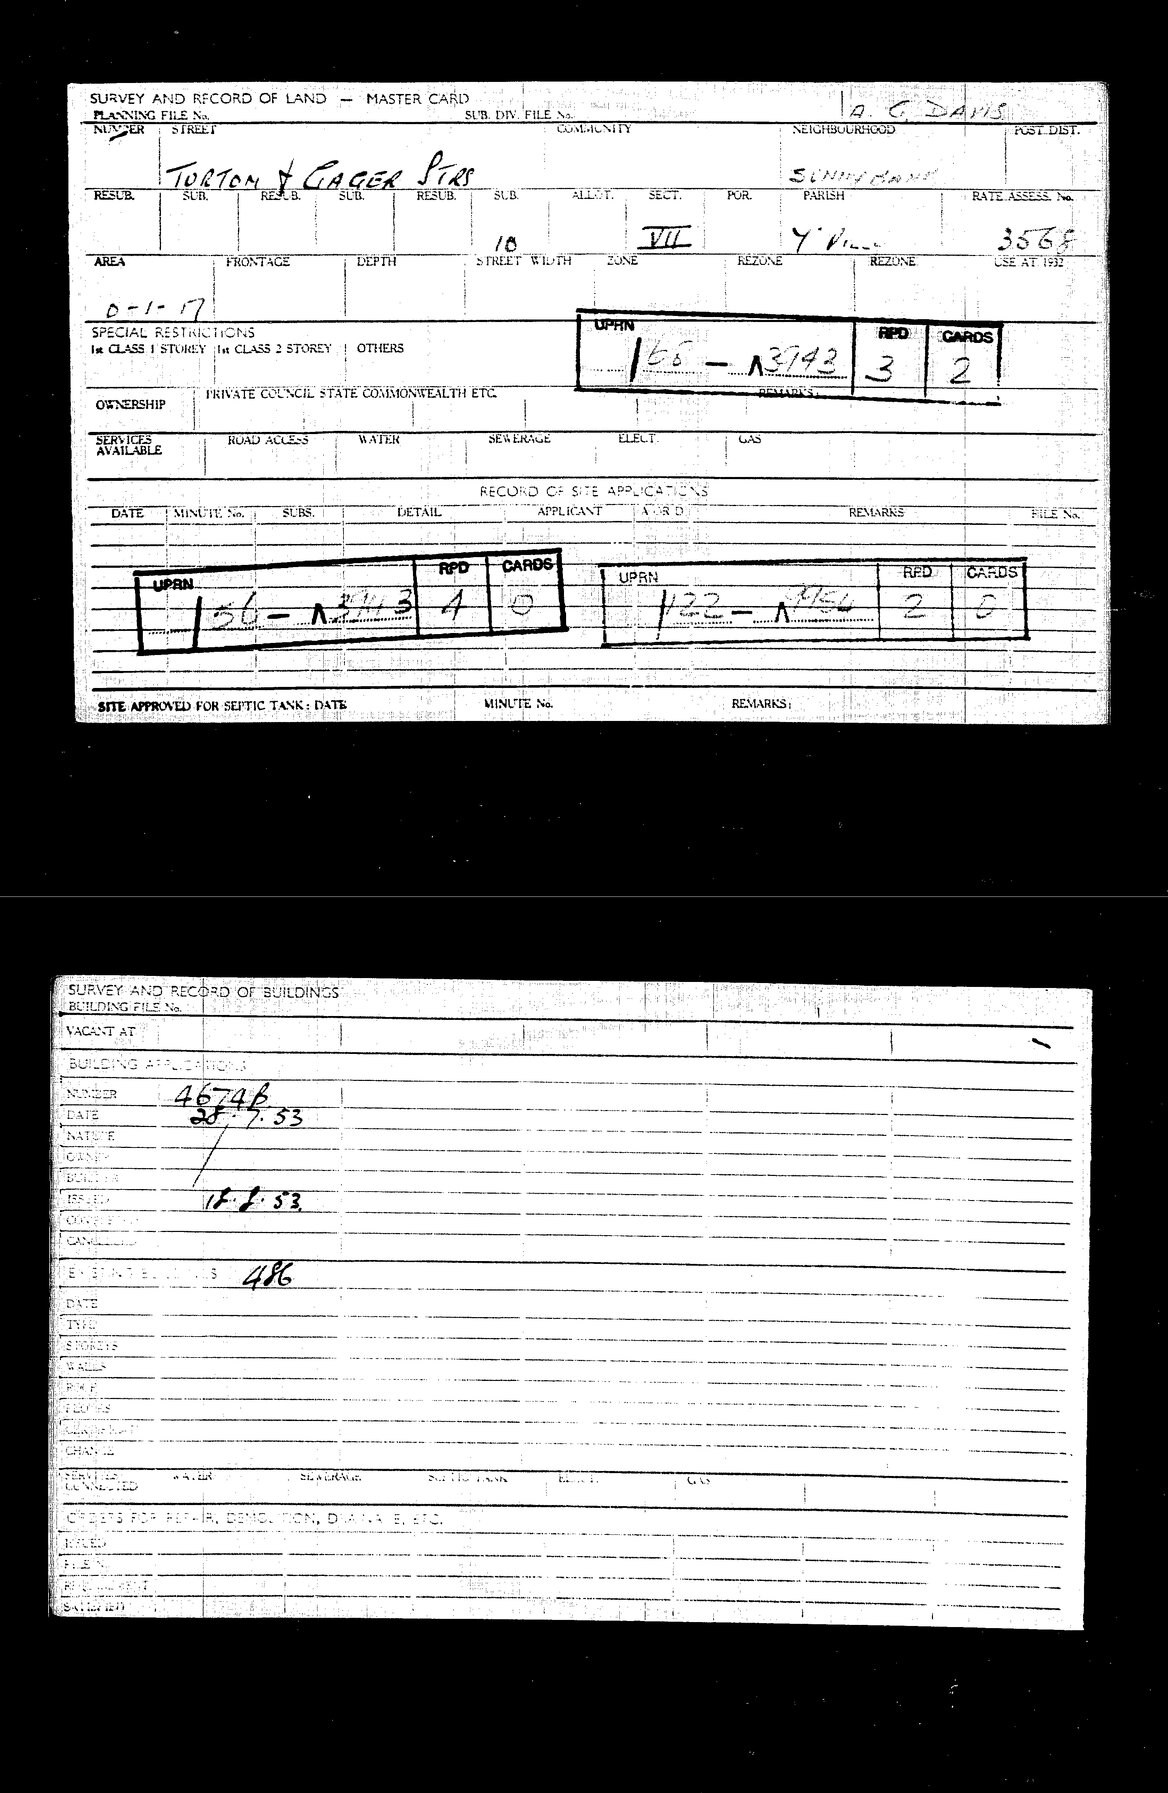 SURVEY AND RECORD OF LAND — MASTER CARD
A. G. DAVIS
PLANNING FILE No. SUB. DIV. FILE No.
NUMBER STREET COMMUNITY NEIGHBOURHOOD POST. DIST.
TURTON & GAGER STRS SUNNYBANK
RESUB. SUB. RESUB. SUB. RESUB. SUB. ALLOT. SECT. POR. PARISH RATE ASSESS. No.
10 VII 3568
AREA FRONTAGE DEPTH STREET WIDTH ZONE REZONE REZONE USE AT 1932
0-1-17
SPECIAL RESTRICTIONS
1st CLASS 1 STOREY 1st CLASS 2 STOREY OTHERS
UPRN RPD CARDS
3943 3 2
OWNERSHIP PRIVATE COUNCIL STATE COMMONWEALTH ETC. REMARKS:
SERVICES AVAILABLE ROAD ACCESS WATER SEWERAGE ELECT. GAS
RECORD OF SITE APPLICATIONS
DATE MINUTE No. SUBS. DETAIL APPLICANT A OR D REMARKS FILE No.
UPRN RPD CARDS
56 — 3943 4 0
UPRN RPD CARDS
122 — 2 0
SITE APPROVED FOR SEPTIC TANK: DATE MINUTE No. REMARKS:
SURVEY AND RECORD OF BUILDINGS
BUILDING FILE No.
VACANT AT
BUILDING APPLICATIONS
NUMBER 4674B
DATE 28.7.53
NATURE
OWNER
BUILDER
ISSUED 18.8.53
COMPLETED
CANCELLED
EXISTING BUILDINGS 486
DATE
TYPE
STOREYS
WALLS
ROOF
CHANGE
SERVICES CONNECTED WATER SEWERAGE SEPTIC TANK ELECT. GAS
ORDERS FOR REPAIR, DEMOLITION, DRAINAGE, ETC.
ISSUED
FILE No.
REQUIREMENT
SATISFIED